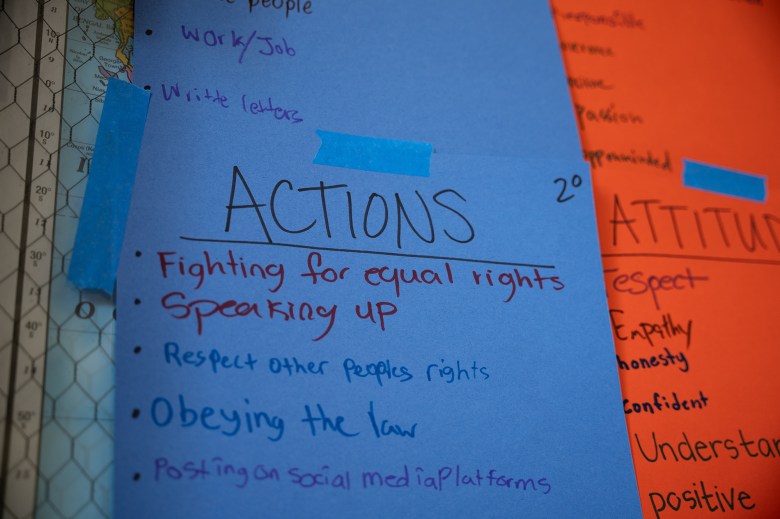 people
• Work/Job
• Writte letters
ACTIONS
2°
• Fighting for equal rights
• Speaking up
• Respect other peoples rights
• Obeying the law
• Posting on social media Platforms
Passion
ATTITU
respect
Empathy
honesty
confident
Understan
positive
10°
20°
30°
40°
50°